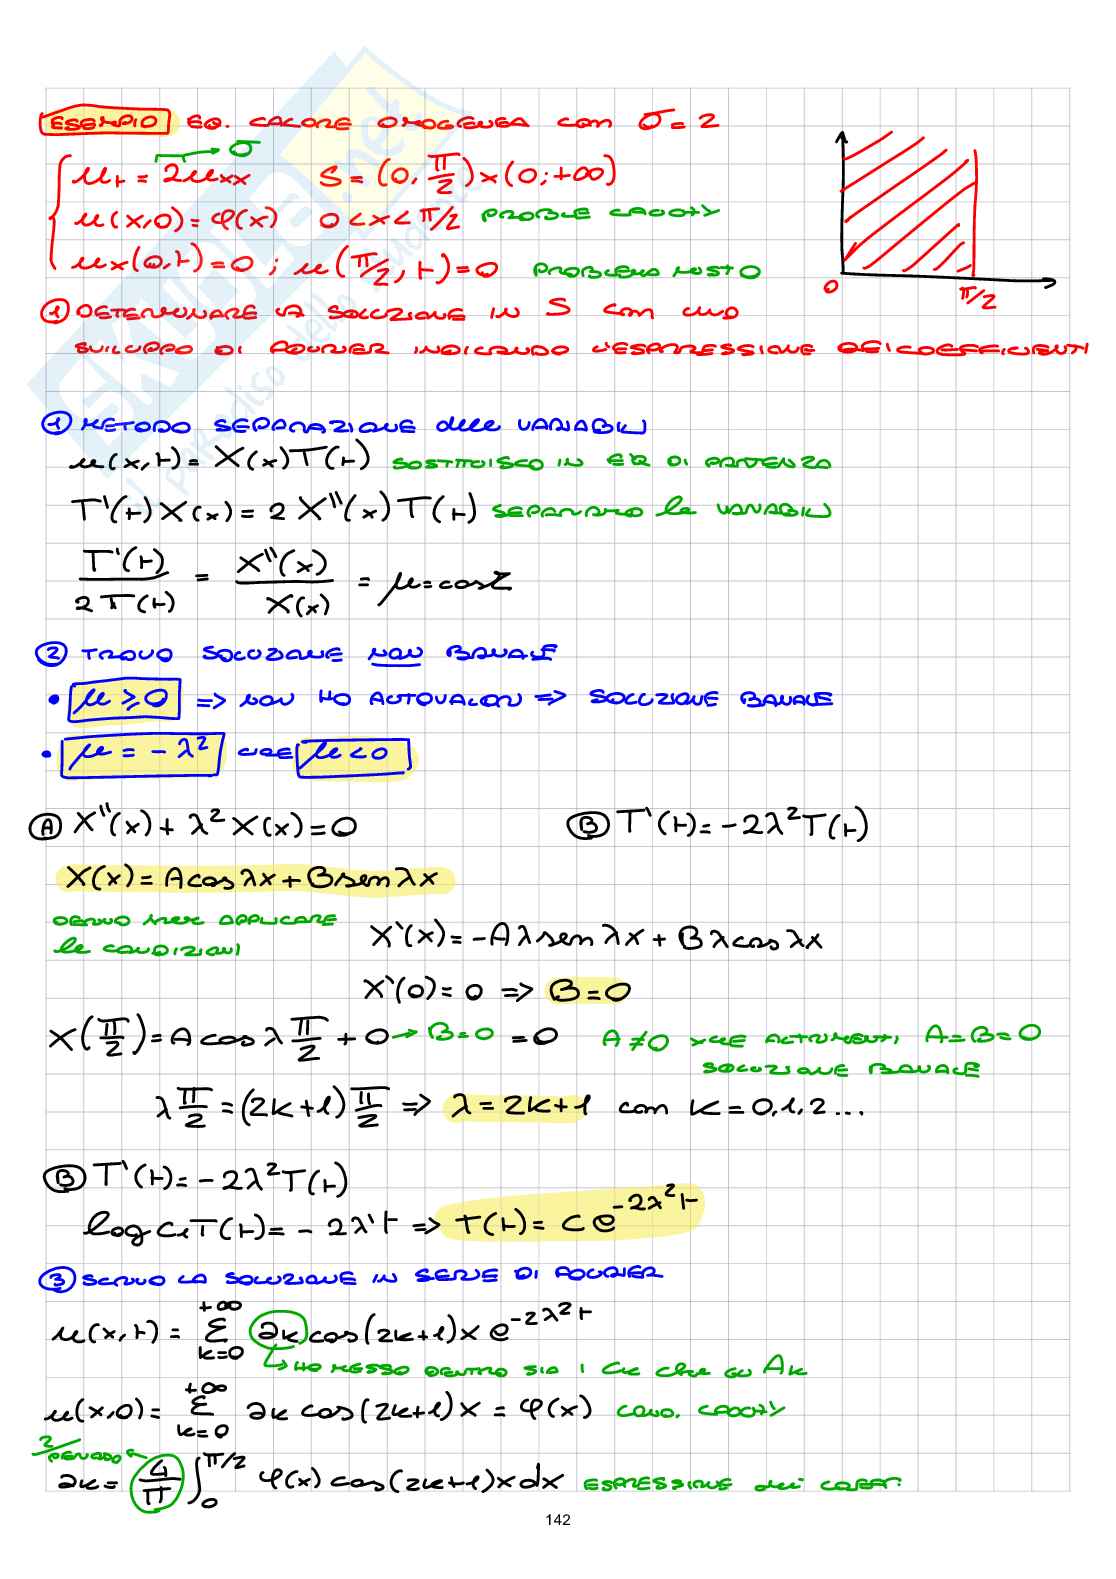 ESEMPIO EQ. CALORE OMOGENEA con σ = 2
→ σ
u_t = 2u_xx S = (0, π/2) × (0; +∞)
u(x,0) = φ(x) 0 < x < π/2 PROBLE CAUCHY
u_x(0,t) = 0 ; u(π/2, t) = 0 PROBLEMA MISTO
0 π/2
① DETERMINARE LA SOLUZIONE IN S CON UNO
SVILUPPO DI FOURIER INDICANDO L'ESPRESSIONE DEI COEFFICIENTI
① METODO SEPARAZIONE delle VARIABILI
u(x,t) = X(x)T(t) SOSTITUISCO IN EQ DI PARTENZA
T'(t)X(x) = 2X''(x)T(t) SEPARANDO le VARIABILI
T'(t)/2T(t) = X''(x)/X(x) = μ = cost
② TROVO SOLUZIONE NON BANALE
• μ ≥ 0 => NON HO AUTOVALORI => SOLUZIONE BANALE
• μ = - λ² CIOE μ < 0
Ⓐ X''(x) + λ²X(x) = 0 Ⓑ T'(t) = -2λ²T(t)
X(x) = A cos λx + B sen λx
DERIVO PER APPLICARE
le CONDIZIONI
X'(x) = -Aλ sen λx + Bλ cos λx
X'(0) = 0 => B = 0
X(π/2) = A cos λ π/2 + 0 → B = 0 = 0 A ≠ 0 xché ALTRIMENTI A = B = 0
SOLUZIONE BANALE
λ π/2 = (2k+1) π/2 => λ = 2k+1 con k = 0,1,2...
Ⓑ T'(t) = -2λ²T(t)
log c₁T(t) = -2λ't => T(t) = C e^{-2λ²t}
③ SCRIVO LA SOLUZIONE IN SERIE DI FOURIER
u(x,t) = Σ_{k=0}^{+∞} ak cos(2k+1)x e^{-2λ²t}
↳ HO MESSO DENTRO SIA i Ck che gli Ak
u(x,0) = Σ_{k=0}^{+∞} ak cos(2k+1)x = φ(x) COND. CAUCHY
2/PERIODO
ak = 4/π ∫_0^{π/2} φ(x) cos(2k+1)x dx ESPRESSIONE dei COEFF.
142